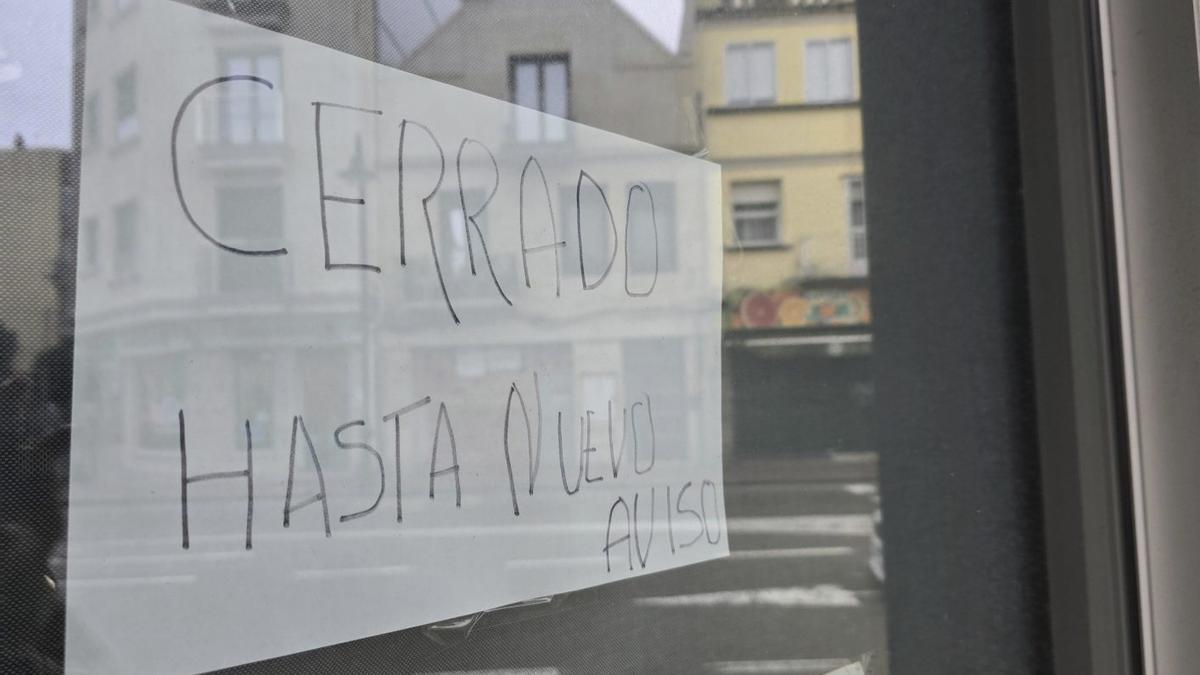 CERRADO
HASTA NUEVO
AVISO